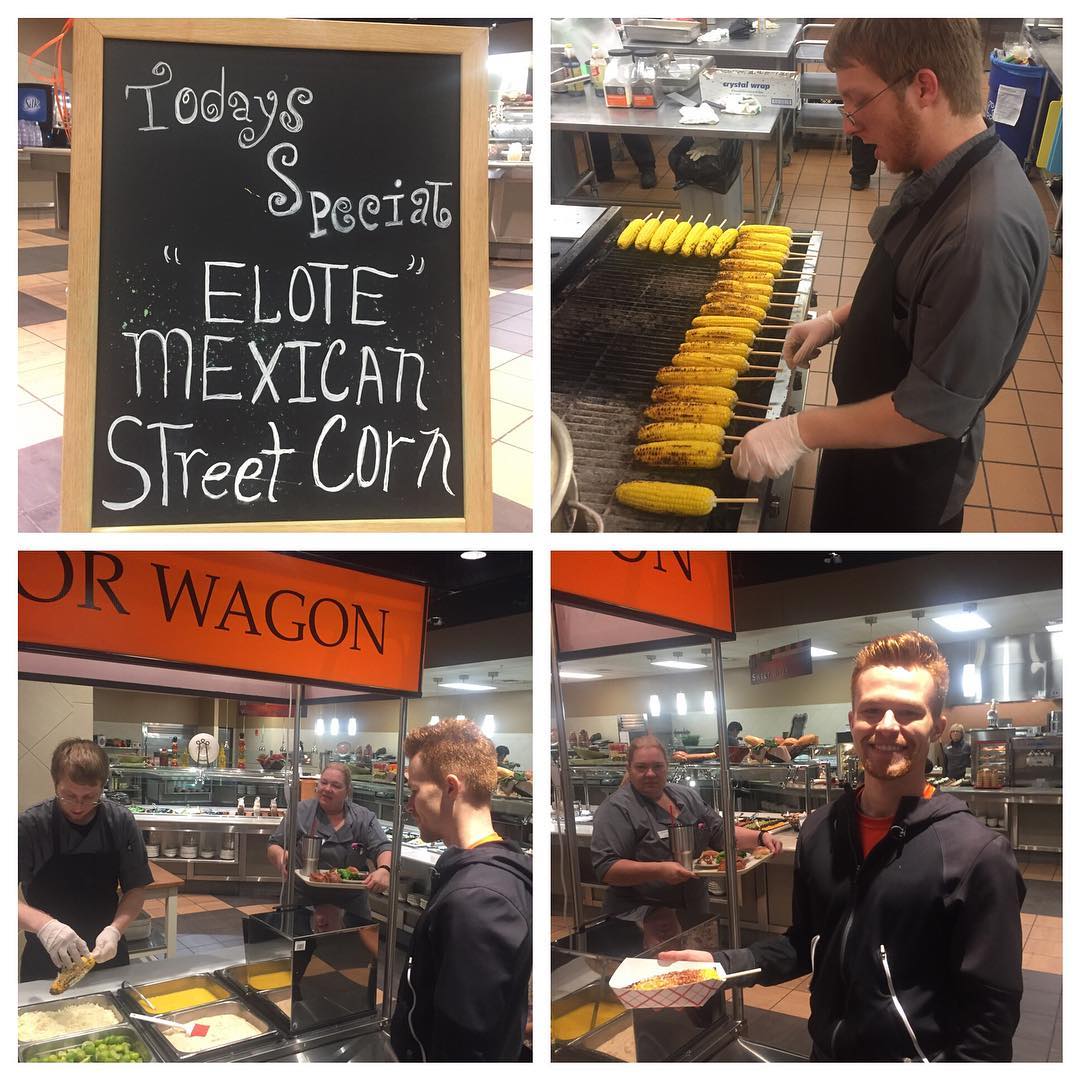 Todays
Special
"ELOTE"
MEXICAN
Street Corn
crystal wrap
OR WAGON
ON